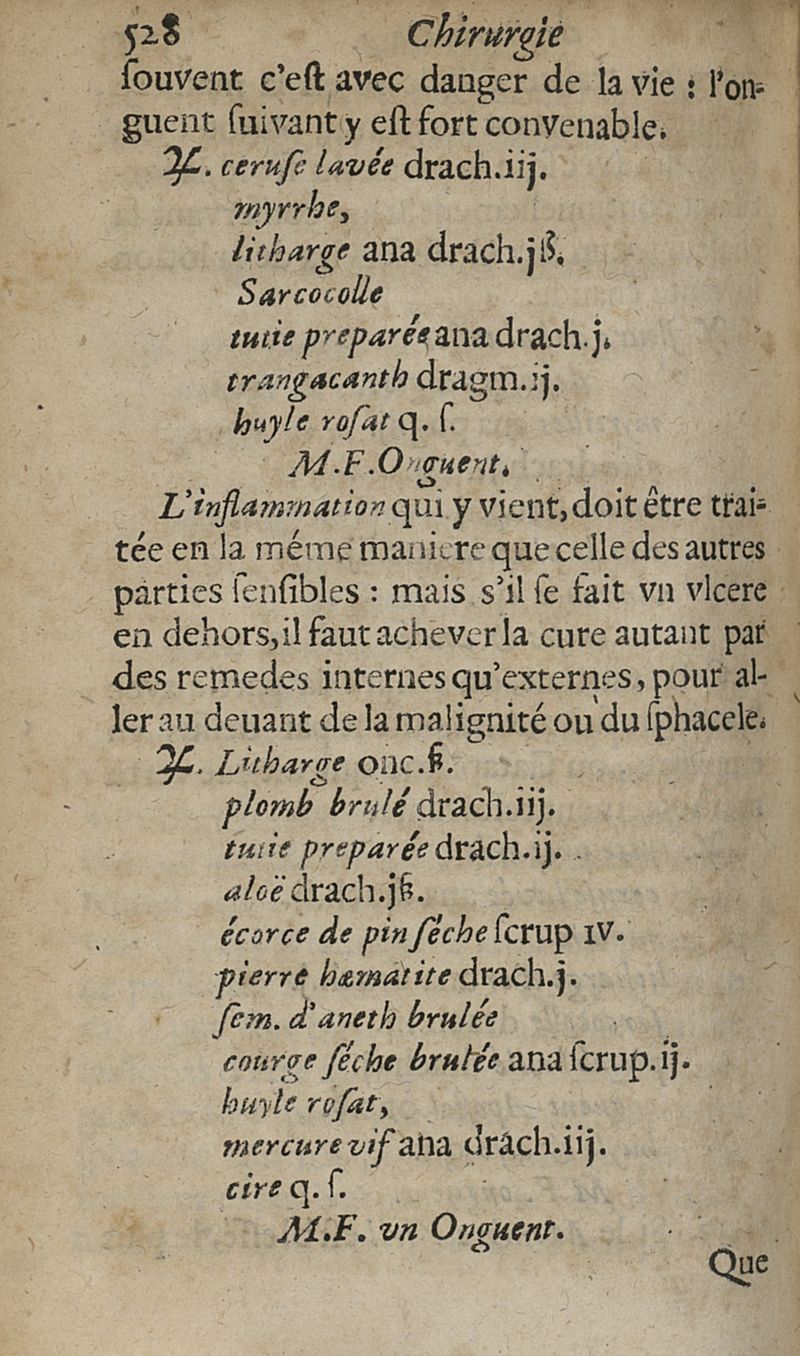 528 Chirurgie
ſouvent c'eſt avec danger de la vie : l'on-
guent ſuivant y eſt fort convenable.
♃. ceruſe lavée drach.iij.
myrrhe,
litharge ana drach.jß.
Sarcocolle
tutie preparée ana drach.j.
trangacanth dragm.ij.
huyle roſat q. ſ.
M.F.Onguent.
L'inflammation qui y vient, doit être trai-
tée en la méme maniere que celle des autres
parties ſenſibles : mais s'il ſe fait vn vlcere
en dehors, il faut achever la cure autant par
des remedes internes qu'externes, pour al-
ler au deuant de la malignité ou du ſphacele.
♃. Litharge onc.ß.
plomb brulé drach.iij.
tutie preparée drach.ij.
aloë drach.jß.
écorce de pin ſéche ſcrup IV.
pierre hæmatite drach.j.
ſem. d'aneth brulée
courge ſéche brulée ana ſcrup.ij.
huyle roſat,
mercure vif ana drach.iij.
cire q. ſ.
M.F. vn Onguent.
Que